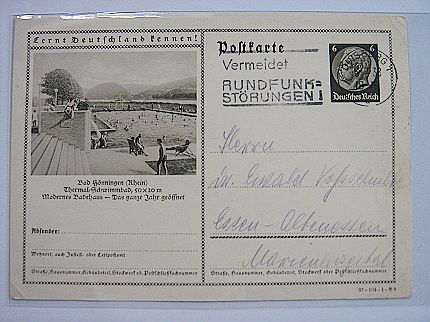 Lernt Deutschland kennen!
Bad Hönningen (Rhein)
Thermal-Schwimmbad, 50 x 20 m
Modernes Badehaus — Das ganze Jahr geöffnet
Absender:
Wohnort, auch Zustell- oder Leitpostamt
Straße, Hausnummer, Gebäudeteil, Stockwerk od. Postschließfachnummer
Postkarte
Vermeidet
RUNDFUNK-
STÖRUNGEN!
6 6
Deutsches Reich
Herrn
Dr. Ewald
Essen-Altenessen
Marienhospital
Straße, Hausnummer, Gebäudeteil, Stockwerk oder Postschließfachnummer